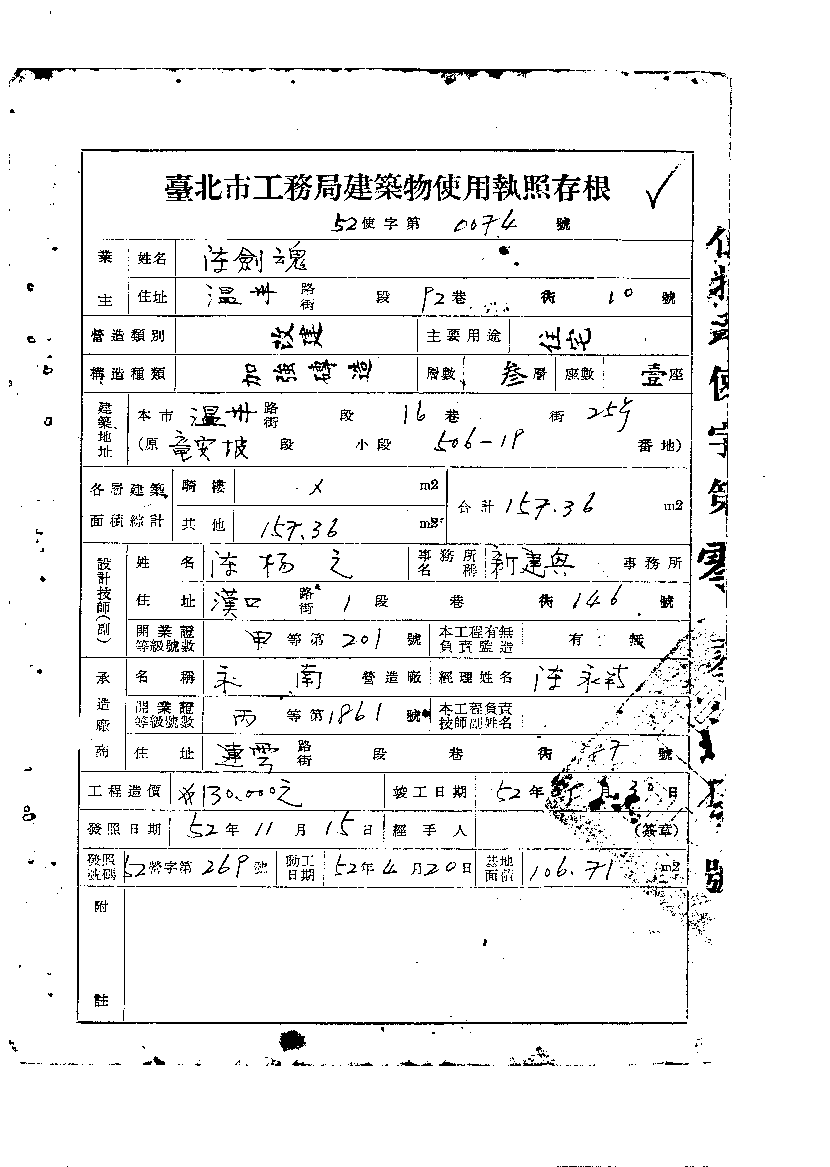 臺北市工務局建築物使用執照存根
52使字第 0074 號
業主 姓名 陳劍魂
住址 溫州 路街 段 92巷 衖 10 號
營造類別 改建 主要用途 住宅
構造種類 加強磚造 層數 叁層 座數 壹座
建築地址 本市 溫州 路街 段 16巷 街 25號
(原 竜安坡 段 小段 506-19 番地)
各層建築面積綜計 騎樓 × m2 合計 157.36 m2
其他 157.36 m2
設計技師(副) 姓名 陳楊之 事務所名稱 新建興 事務所
住址 漢口 路街 1段 巷 衖 146 號
開業證等級號數 甲等第 201 號 本工程有無負責監造 有 無
承造廠商 名稱 永南 營造廠 經理姓名 陳永
開業證等級號數 丙等第 1861 號 本工程負責技師副姓名
住址 連雲 路街 段 巷 衖 87 號
工程造價 130.000元 竣工日期 52年 月30日
發照日期 52年11月15日 經手人 (簽章)
發照號碼 52營字第269號 動工日期 52年4月20日 基地面積 106.71 m2
附註
使字第零零 號